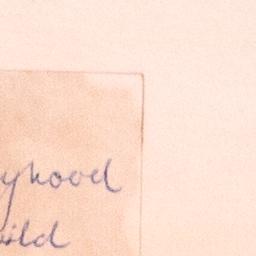 yhood
ild